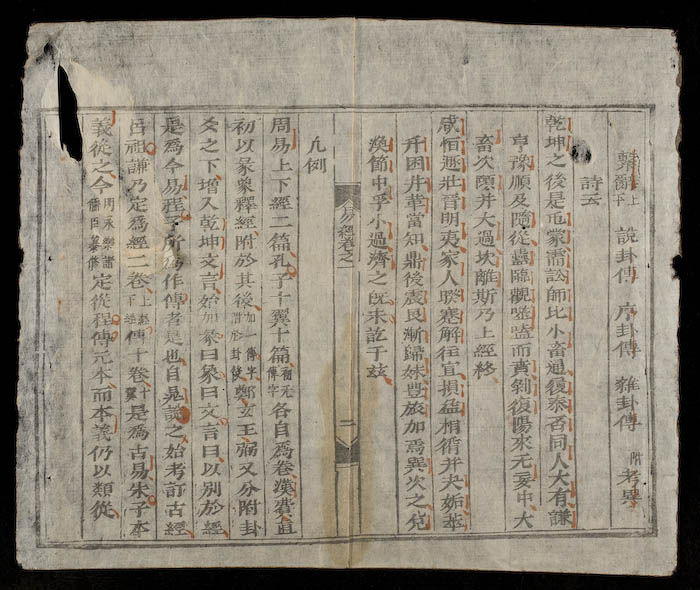 繫辭上下 說卦傳 序卦傳 雜卦傳 附考異
詩云
乾坤之後是屯蒙需訟師比小畜通履泰否同人大有謙
亨豫順及隨從蠱臨觀噬嗑而賁剝復陽來无妄中大
畜次頤并大過坎離斯乃上經終
咸恒遯壯晉明夷家人睽蹇解往宜損益相循并夬姤萃
升困井革當知鼎後震艮漸歸妹豐旅加焉巽次之兌
渙節中孚小過濟之旣未訖于玆
易經卷之一 二
凡例
周易上下經二篇孔子十翼十篇初元傳字各自爲卷漢費直
初以彖象釋經附於其後加一傳字鄭玄王弼又分附卦
爻之下增入乾坤文言始加彖曰象曰文言曰以別於經
是爲今易程子所爲作傳者是也自晁說之始考訂古經
呂祖謙乃定爲經二卷上經下經傳十卷十翼是爲古易朱子本
義從之今明永樂諸儒臣纂修定從程傳元本而本義仍以類從